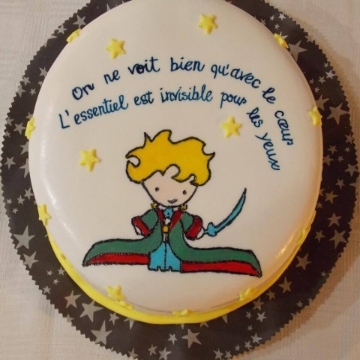 On ne voit bien qu'avec le cœur
L'essentiel est invisible pour les yeux